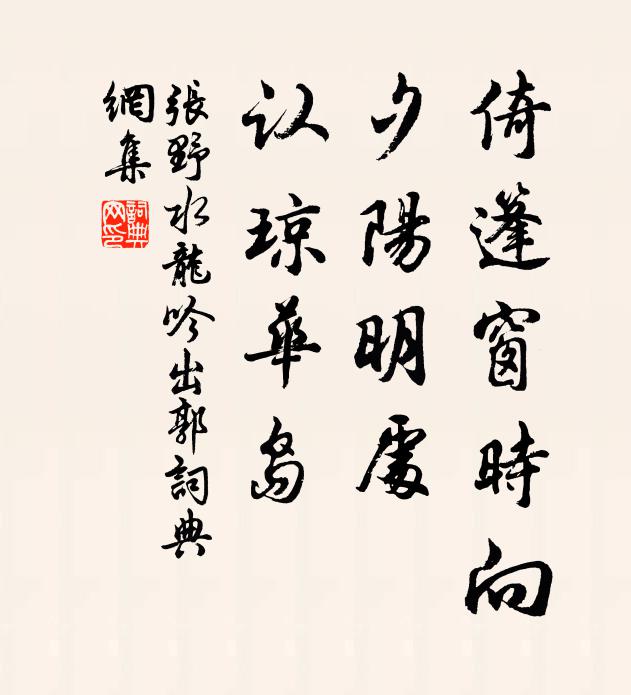 倚蓬窗時向
夕陽明處
认琼華島
張野水龍吟出郭詞典
網集
詞典
网印